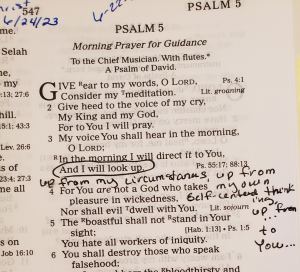 547
PSALM 5
6/24/23
6-22-
PSALM 5
Selah
Morning Prayer for Guidance
To the Chief Musician. With flutes.*
A Psalm of David.
GIVE Rear to my words, O LORD, Ps. 4:1
Consider my Tmeditation. Lit. groaning
2 Give heed to the voice of my cry,
My King and my God,
For to You I will pray.
3 My voice You shall hear in the morning,
O LORD;
RIn the morning I will direct it to You,
And I will look up. Ps. 55:17; 88:13
up from my circumstances, up from
4 For You are not a God who takes my own
pleasure in wickedness, Self-centered think
Nor shall evil Tdwell with You. Lit. sojourn ing,
5 The Rboastful shall not Rstand in Your up from...
sight; [Hab. 1:13] • Ps. 1:5 to
You hate all workers of iniquity. You...
6 You shall destroy those who speak
falsehood;
me.
e, my
:13; 27:6
hill.
15:1; 43:3
Lev. 26:6
s of
23:4; 27:3
me all
s on
Job 16:10